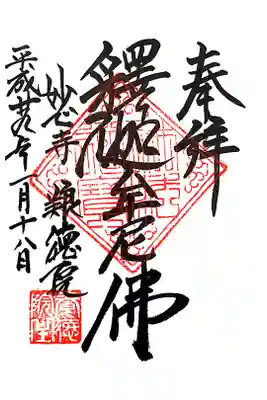 奉拜
釋迦牟尼佛
妙心寺 麟德院
平成廿九年一月十八日